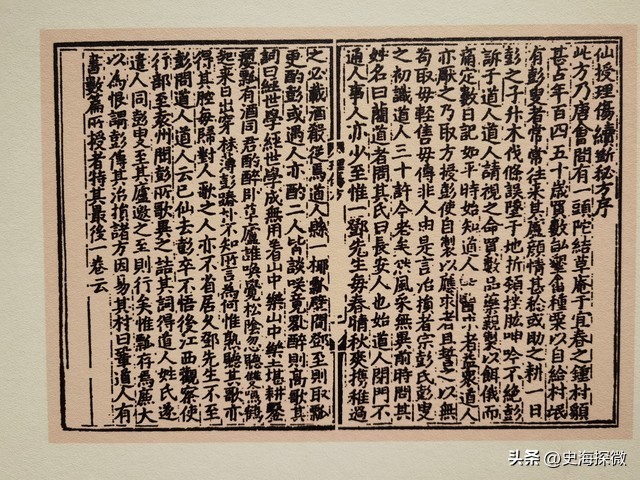 仙授理傷續斷秘方序
此方乃唐會昌間有一頭陀結草庵于宜春之鍾村貌
甚古年百四五十歲買數畝墾畬種粟以自給村氓
有彭叟者常常往來其廬顏情甚稔或助之耕一日
彭之子升木伐條誤墜于地折頸挫肱呻吟不絕彭
訴于道人道人請視之命買數品藥親製以餌俄而
痛定數日已如平時始知道人能醫求者益眾道人
亦厭之乃取方授彭使自製以應求者且誓之以無
苟取毋輕售毋傳非人由是言治損者宗彭氏彭叟
之初識道人三十許今老矣然風采無異前時問其
姓名曰藺道者問其氏曰長安人也始道人閉門不
通人事人亦少至惟一鄧先生每春晴秋爽攜稚過
之必載酒殽從焉道人縣一椰瓢壁間鄧至則取瓢
更酌彭或遇人亦酌二人皆談笑竟飲醉則高歌其
詞曰經世學經世學成無用着山中樂山中樂土堪耕鑿
癭瓢有酒同君酌醉臥草廬誰喚覺松陰忽聽雙鳴鶴
起來日出穿林薄彭踏卆不知所言為何惟熟聽其歌亦
得其腔每歸對人歌之人亦不省居久鄧先生不至
彭問道人道人云已仙去彭卒不悟後江西觀察使
行部至袁州聞彭所歌異之詰其詞得道人姓氏遂
遣人同彭叟至其廬邀之至則行矣惟瓢存焉廉大
以為恨謂彭傳其治損諸方因易其村曰鞏道人有
書數篇所授者特其最後一卷云
头条 @史海探微